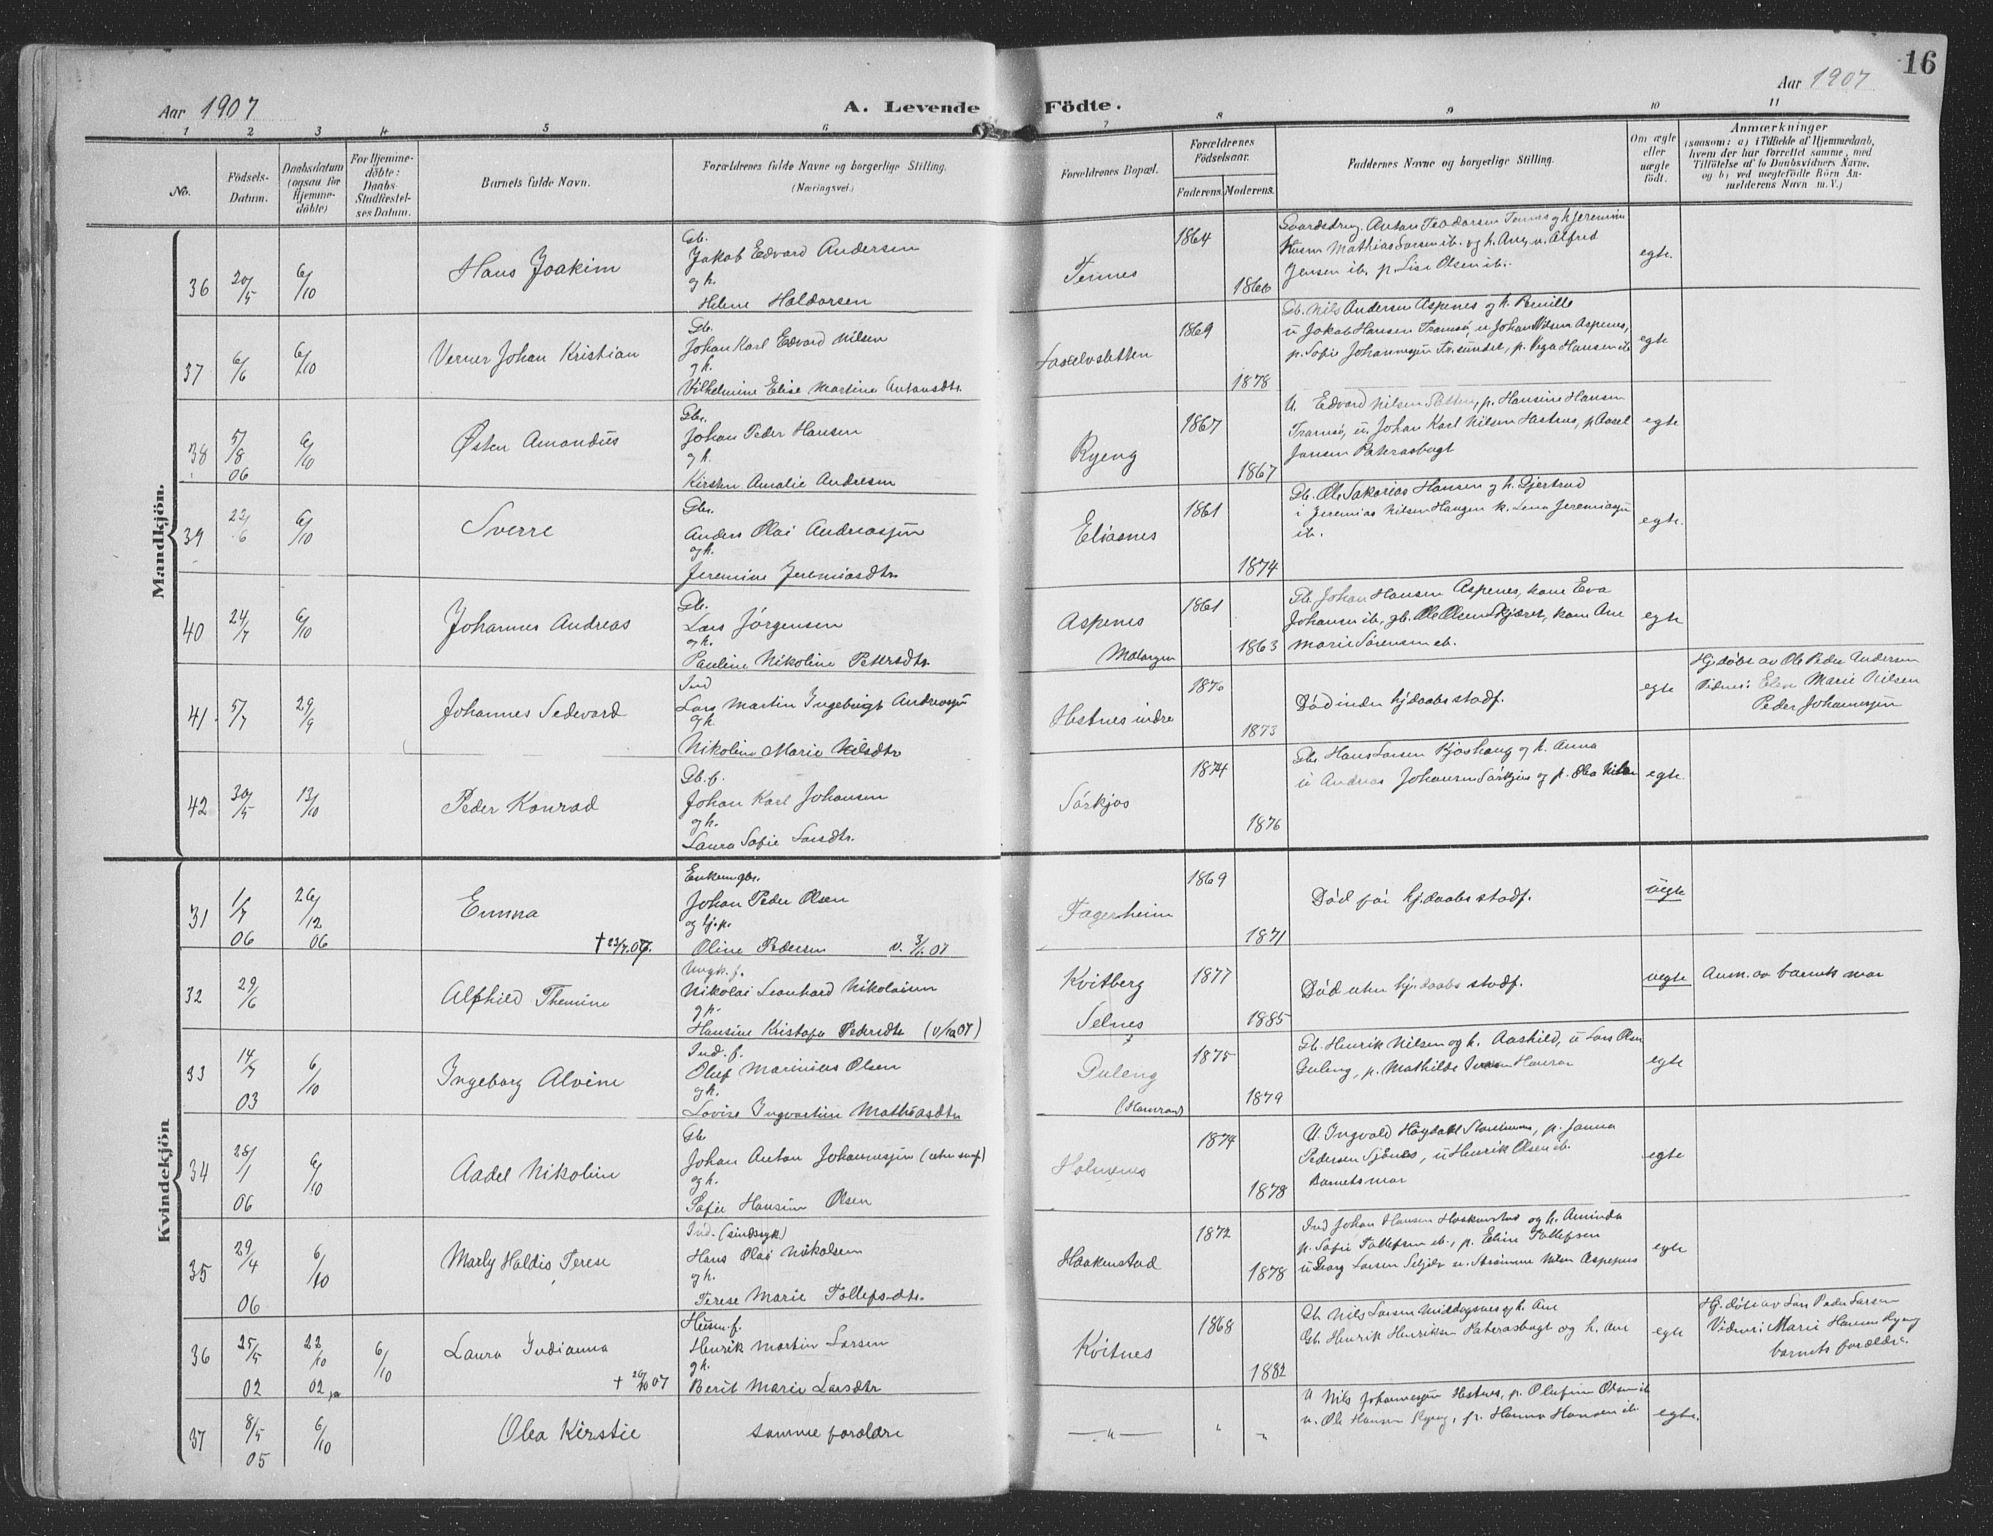 16
Aar 1907
A. Levende Födte.
Aar 1907
1 2 3 4 5 6 7 8 9 10 11
No.
Födsels-
Datum.
Daabsdatum
(ogsaa for
Hjemme-
döbte)
For Hjemme-
döbte:
Daabs-
Stadfæstel-
ses Datum.
Barnets fulde Navn.
Forældrenes fulde Navne og borgerlige Stilling.
(Næringsvei.)
Forældrenes Bopæl.
Forældrenes
Födselsaar.
Faderens. Moderens.
Faddernes Navne og borgerlige Stilling.
Om ægte
eller
uægte
födt.
Anmærkninger
(saasom: a) i Tilfælde af Hjemmedaab,
hvem der har forrettet samme, med
Tilföielse af to Daabsvidners Navne,
og b) ved uægtefödte Börn An-
melderens Navn m. V.)
Mandkjön.
36 20/5 6/10 Hans Joakim
Gb.
Jakob Edvard Andersen
og h.
Helene Haldorsen
Tennes 1864 1866
Jensen ib. p. Lise Olsen ib.
egte.
37 6/6 6/10 Verner Johan Kristian
Gb.
Johan Karl Edvard Nilsen
og h.
Vilhelmine Elise Martine Antonsdtr.
1869 1878
Gb. Nils Andersen Aspenes og h. Pernille
u Jakob Hansen Tromsø, u Johan Nilsen Aspenes,
egte
38 5/8 06 6/10 Østen Amandus
Gbr.
Johan Peder Hansen
og h.
Kirsten Amalie Andresen
Ryeng 1867 1867
U. Edvard Nilsen Sletten, p. Hansine Hansen
Tromsø, u. Johan Karl Nilsen Hestnes, p Aasel
Jansen Paterasbugt
egte
39 22/6 6/10 Sverre
Gbr.
Anders Olai Andreassen
og h.
Jeremine Jeremiasdtr.
Eliasnes 1861 1874
Gb. Ole Sakarias Hansen og h. Gjertrud
ib.
egte.
40 24/7 6/10 Johannes Andreas
Gb.
Lars Jørgensen
og h.
Pauline Nikoline Petersdtr.
Aspenes
Malangen
1861 1863
Gb. Johan Hansen Aspenes, kone Eva
Johansen ib, gb. Ole Olsen Skjæret, kone Ane
marie Sørensen ib.
egte
41. 5/7 29/9 Johannes Sedevard
Ind
Lars Martin Ingebrigt Andreassen
og h.
Nikoline Marie Nilsdtr
Hestnes indre 1870 1873
Død inden hjdaabs stadf.
egte
Hjdøbt av Ole Peder Andersen
Vidner: Elen Marie Nilsen
Peder Johannesen
42 30/5 13/10 Peder Konrad
Gb. f.
Johan Karl Johansen
og h.
Laura Sofie Larsdtr.
Sørkjos 1874 1876
Gbr Hans Larsen Kjoshaug og h. Anna
u Andreas Johansen Sørkjos og p. Olea Nilsen
egte.
Kvindekjön
31 1/7 06 26/12 06 Emma
Enkemgbr.
Johan Peder Olsen
Oline Pedersen v. 3/1 07
Fagerheim 1869 1871
Død før hjdaabs stadf.
uegte
32 29/6 Alfhild Themine
Ungk. f.
Nikolai Leonhard Nikolaisen
og p.
Hansine Kristofa Pedersdtr
Kvitberg
Selnes
1877 1885
Død uten hjdaabs stadf.
uegte
Anm. av barnets mor
33 14/7 03 6/10 Ingeborg Alvine
Ind. f.
Oluf Marinius Olsen
og h.
Lovise Ingvartine Mathiasdtr
Guleng
1875 1879
Gb. Henrik Nilsen og h. Aashild, u Lars Olsen
egte
34 28/1 06 6/10 Aadel Nikoline
Gb.
og h.
Sofie Hansine Olsen
Holmenes 1874 1878
Pedersen Sjønes, u Henrik Olsen ib.
Barnets mor
egte
35 29/4 06 6/10 Marly Haldis Terese
Ind. (sindssyk)
Hans Olai Nikolsen
og h.
Terese Marie Tollefsdtr.
Haakenstad 1872 1878
Ind Johan Hansen Haakenstad og h. Aminda
p. Sofie Tollefsen ib., p. Eline Tollefsen
egte
36 25/5 02 22/10 02 6/10 Laura Indianna
Husm f.
Henrik Martin Larsen
og h.
Berit Marie Larsdtr
Kvitnes 1868 1882
Gb. Henrik Henriksen Paterasbugt og h. Ane
egte
Hj. døbt av Lars Peder Larsen
Vidner: Marie Hansen Ryeng
barnets forældre.
37 8/5 05 6/10 Olea Kirstie
samme forældre
— " — " "
U Nils Johannesen Hestnes, p. Olufine Olsen ib
u. Ole Hansen Ryeng, p. Hanna Hansen ib.
egte.